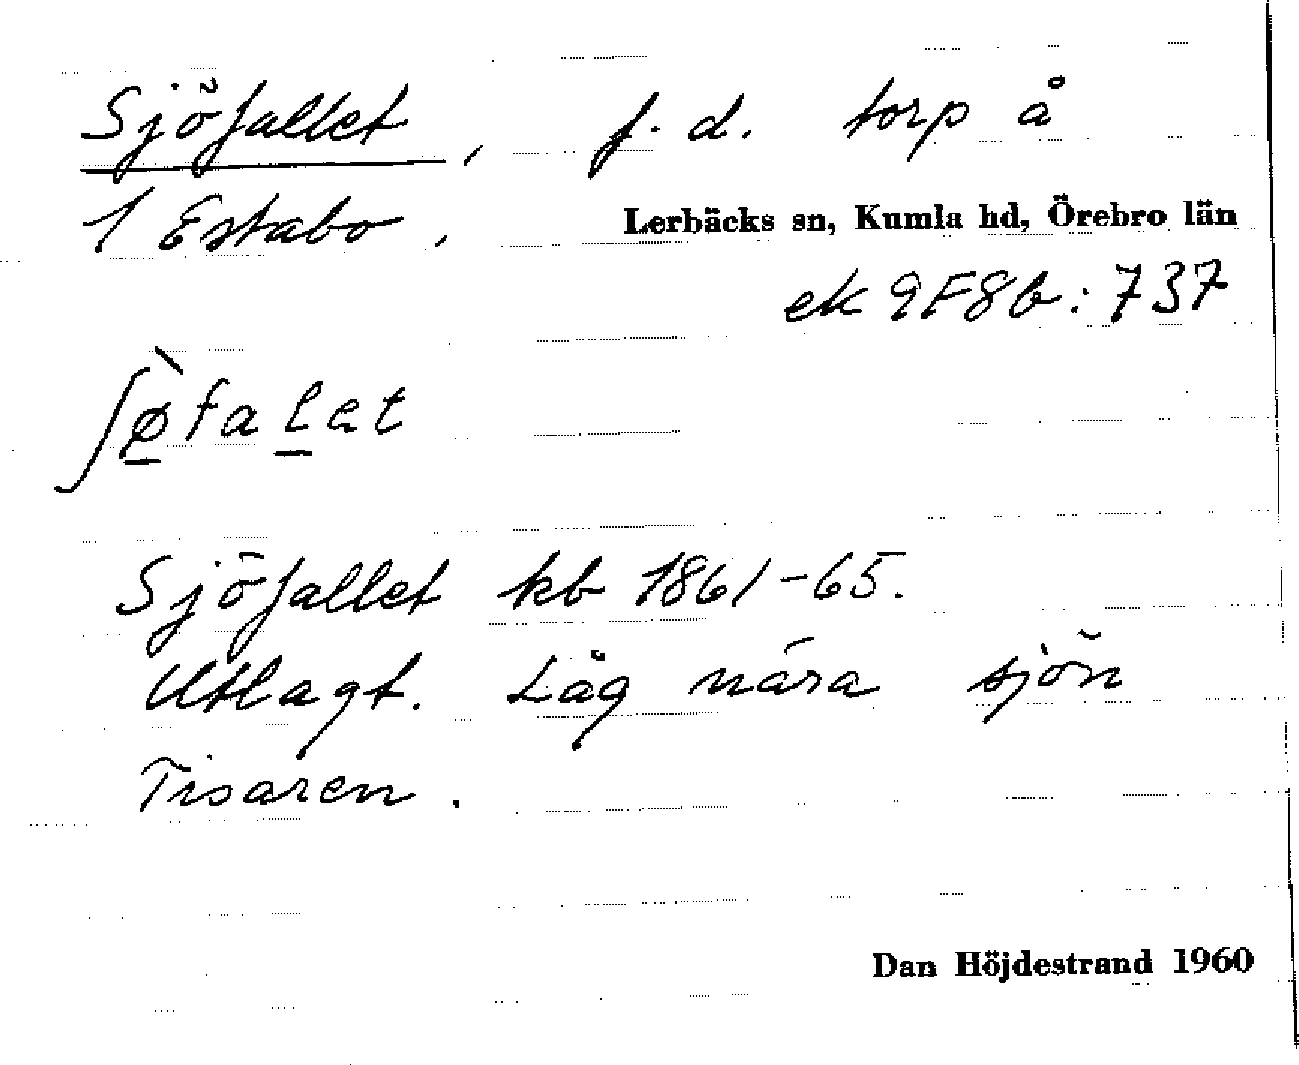 Sjöfallet, f. d. torp å
1 Estabo, Lerbäcks sn, Kumla hd, Örebro län
ek 9F8b:737
ʃø̠̀fal̠et
Sjöfallet kb 1861-65.
Utlagt. Låg nära sjön
Tisaren.
Dan Höjdestrand 1960